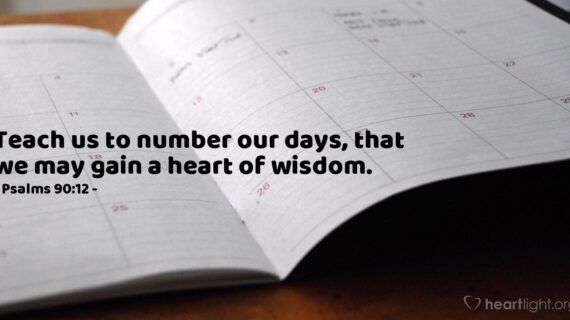 4
Teach us to number our days, that
we may gain a heart of wisdom.
Psalms 90:12 -
25
26
heartlight.org